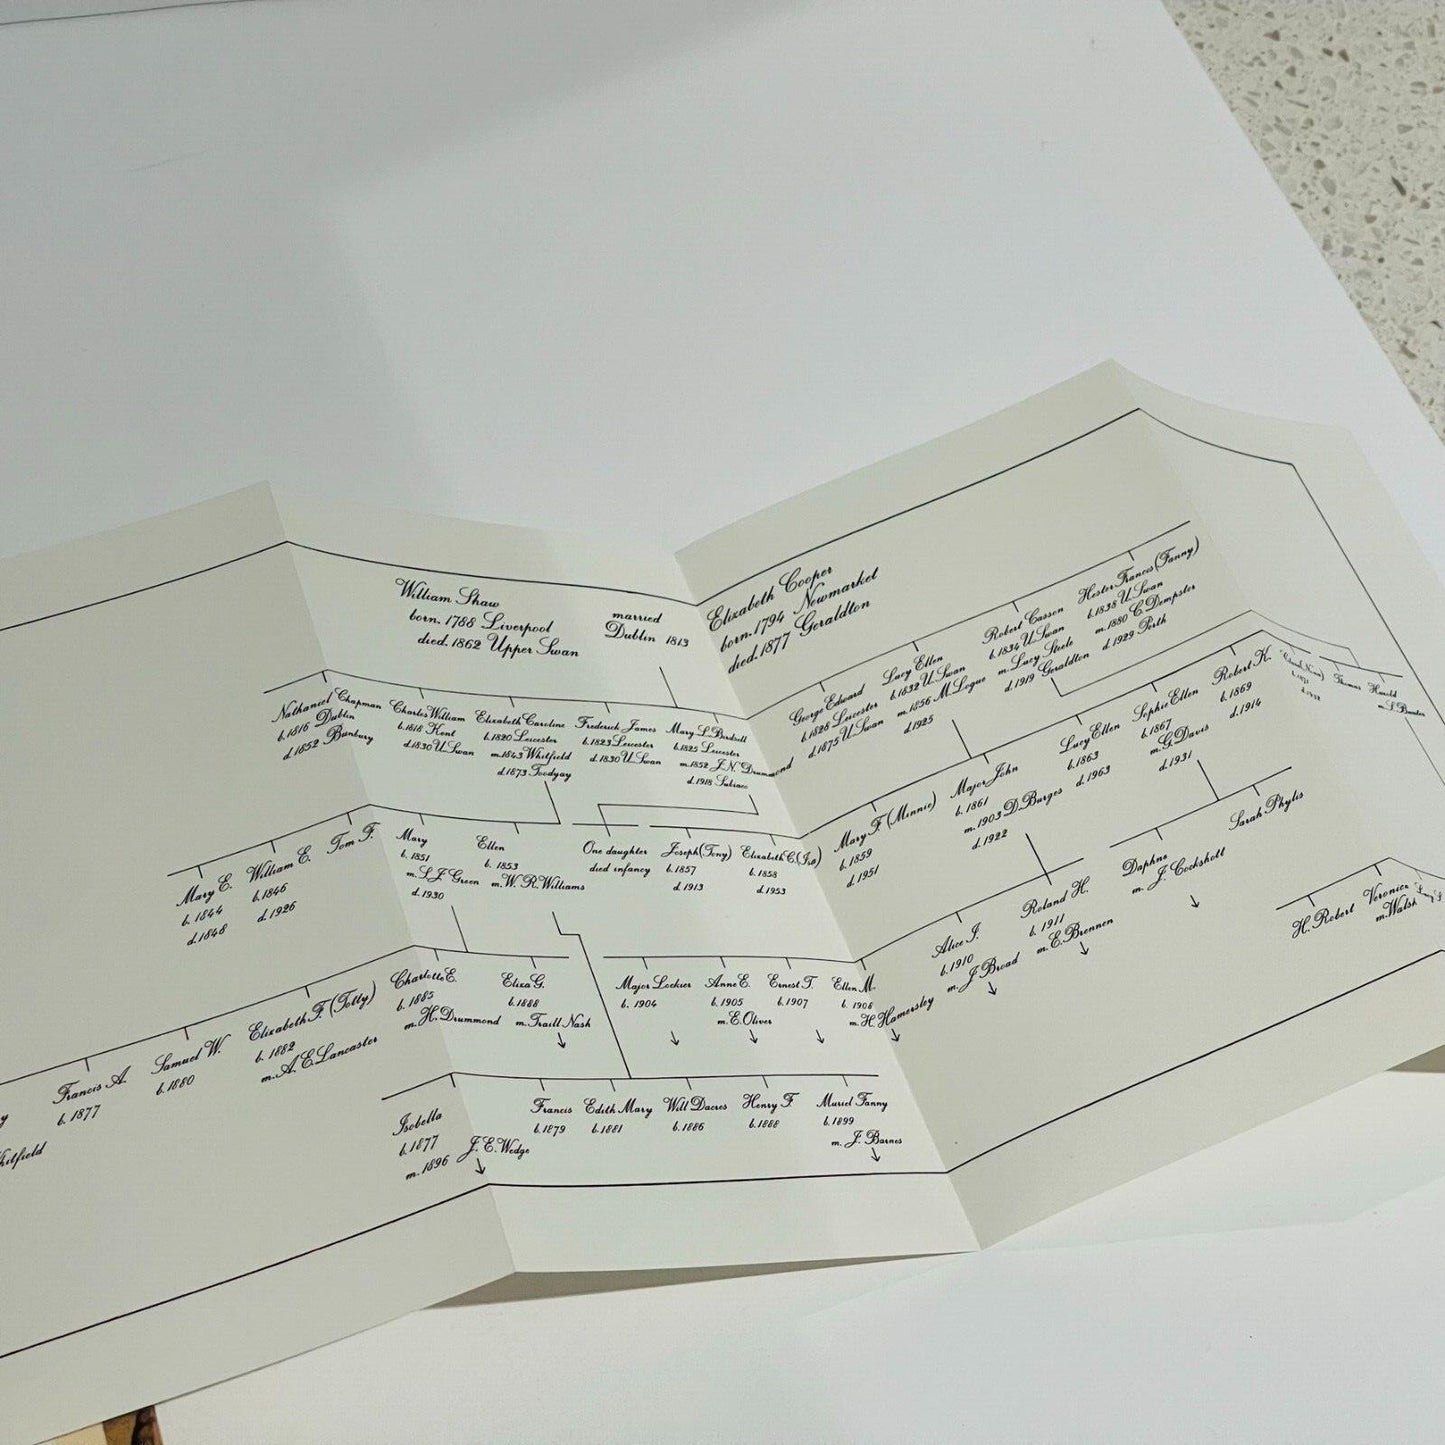 William Shaw
born. 1788 Liverpool
died. 1862 Upper Swan
married
Dublin 1813
Elizabeth Cooper
born. 1794 Newmarket
died. 1877 Geraldton
Nathaniel Chapman
b. 1816 Dublin
d. 1852 Bunbury
Charles William
b. 1818 Kent
d. 1830 U. Swan
Elizabeth Caroline
b. 1820 Leicester
m. 1843 Whitfield
d. 1873 Toodyay
Frederick James
b. 1823 Leicester
d. 1830 U. Swan
Mary L. Birdsell
b. 1825 Leicester
m. 1852 J. N. Drummond
d. 1918 Subiaco
George Edward
b. 1828 Leicester
d. 1875 U. Swan
Lucy Ellen
b. 1832 U. Swan
m. 1856 M. Logue
d. 1925
Robert Casson
b. 1834 U. Swan
m. Lucy Steele
d. 1919 Geraldton
Hester Francis (Fanny)
b. 1838 U. Swan
m. 1880 C. Dempster
d. 1929 Perth
Mary E.
b. 1844
d. 1848
William E.
b. 1846
d. 1926
Tom F.
Mary
b. 1851
m. S. J. Green
d. 1930
Ellen
b. 1853
m. W. R. Williams
One daughter
died infancy
Joseph (Tony)
b. 1857
d. 1913
Elizabeth C. (Isa)
b. 1858
d. 1953
Mary F. (Minnie)
b. 1859
d. 1951
Major John
b. 1861
m. 1903 D. Burges
d. 1922
Lucy Ellen
b. 1863
d. 1963
Sophie Ellen
b. 1867
m. G. Davis
d. 1931
Robert K.
b. 1869
d. 1914
Thomas
Harold
Francis A.
b. 1877
Samuel W.
b. 1880
Elizabeth F. (Totty)
b. 1882
m. A. E. Lancaster
Charlotte E.
b. 1885
m. H. Drummond
Eliza G.
b. 1888
m. Traill Nash
Major Lockier
b. 1904
Anne E.
b. 1905
m. E. Oliver
Ernest T.
b. 1907
Ellen M.
b. 1908
m. H. Hamersley
Alice J.
b. 1910
m. J. Broad
Roland H.
b. 1911
m. E. Brennen
Daphne
m. J. Cockshott
Sarah Phylis
H. Robert
Veronica
m. Walsh
Isobella
b. 1877
m. 1896 J. E. Wedge
Francis
b. 1879
Edith Mary
b. 1881
Will Dacres
b. 1886
Henry F.
b. 1888
Muriel Fanny
b. 1899
m. J. Barnes